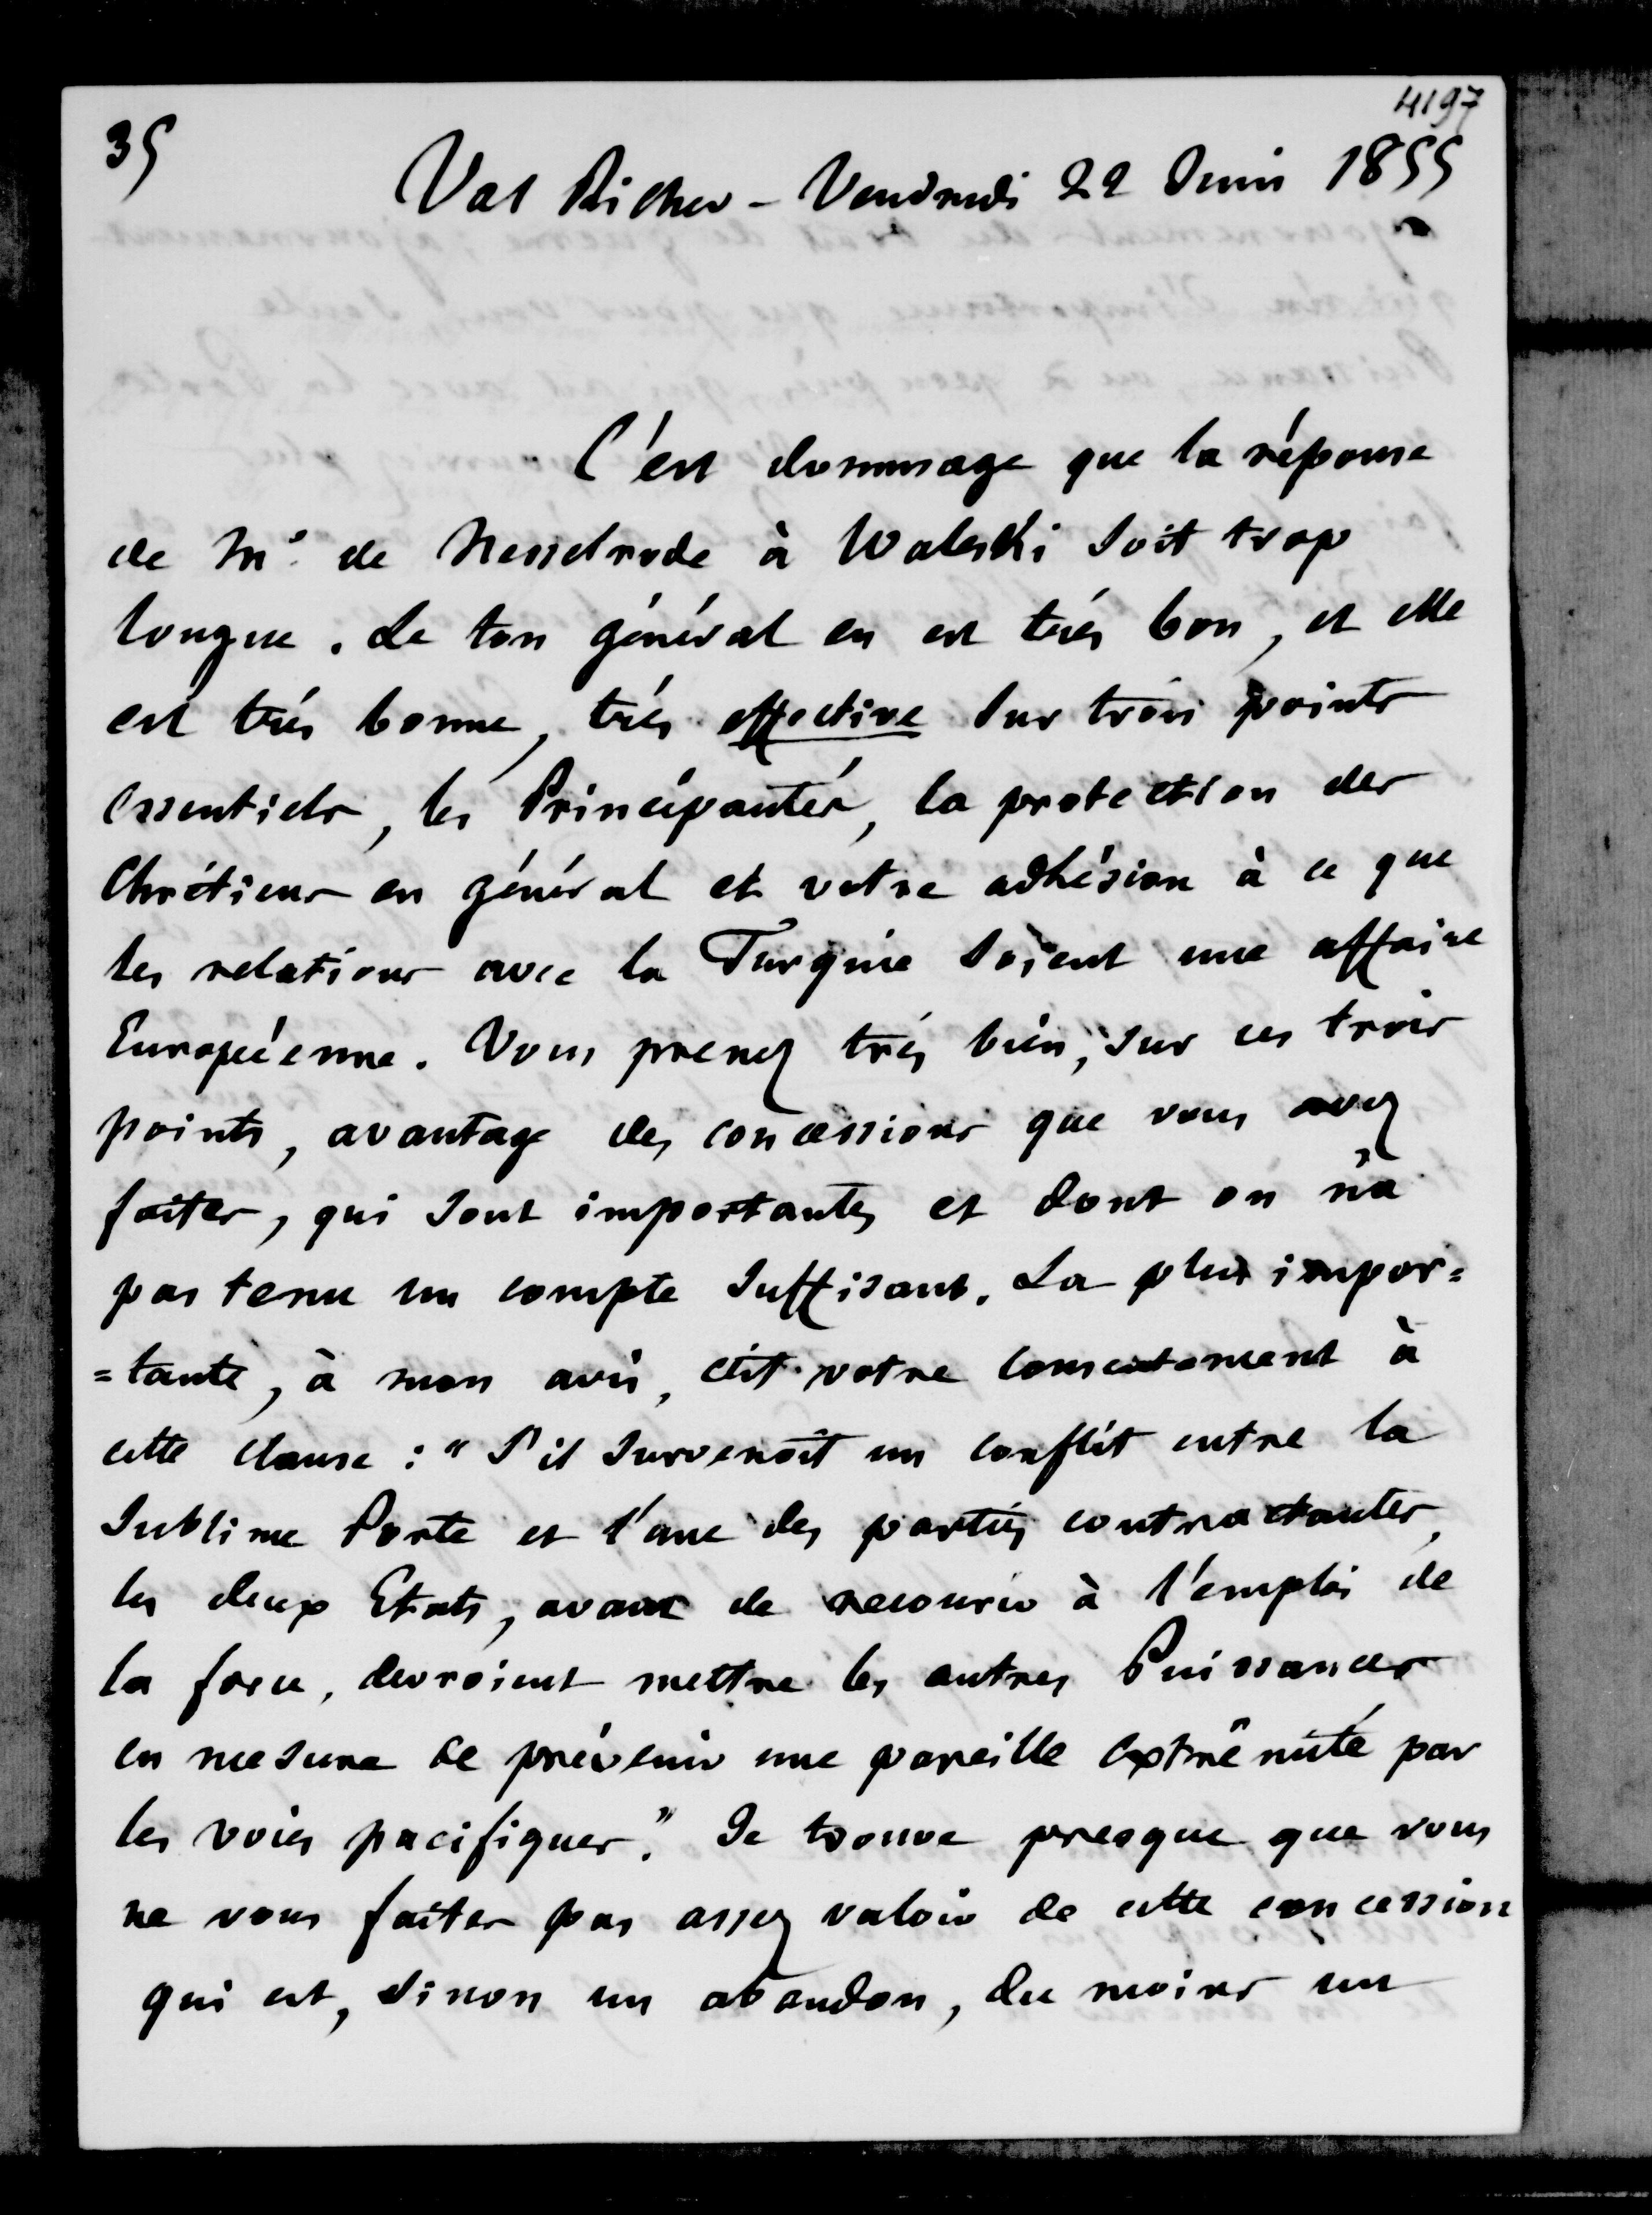 4197
35
Val Richer - Vendredi 22 Juin 1855
C'est dommage que la réponse
de Mr. de Nesselrode à Waleski soit trop
longue. Le ton général en est très bon, et elle
est très bonne, très effective sur trois points
essentiels, les Principautés, la protection des
Chrétiens en général et votre adhésion à ce que
les relations avec la Turquie soient une affaire
Européenne. Vous prenez très bien, sur ces trois
points, avantage des concessions que vous avez
faites, qui sont importantes et dont on n'a
pas tenu un compte suffisant. La plus impor=
=tante, à mon avis, c'est votre consentement à
cette clause : "S'il survenoit un conflit entre la
Sublime Porte et l'une des parties contractantes,
les deux Etats, avant de recourir à l'emploi de
la force, devroient mettre les autres Puissances
en mesure de prévenir une pareille extrêmité par
les voies pacifiques." Je trouve presque que vous
ne vous faites pas assez valoir de cette concession
qui est, sinon un abandon, du moins un